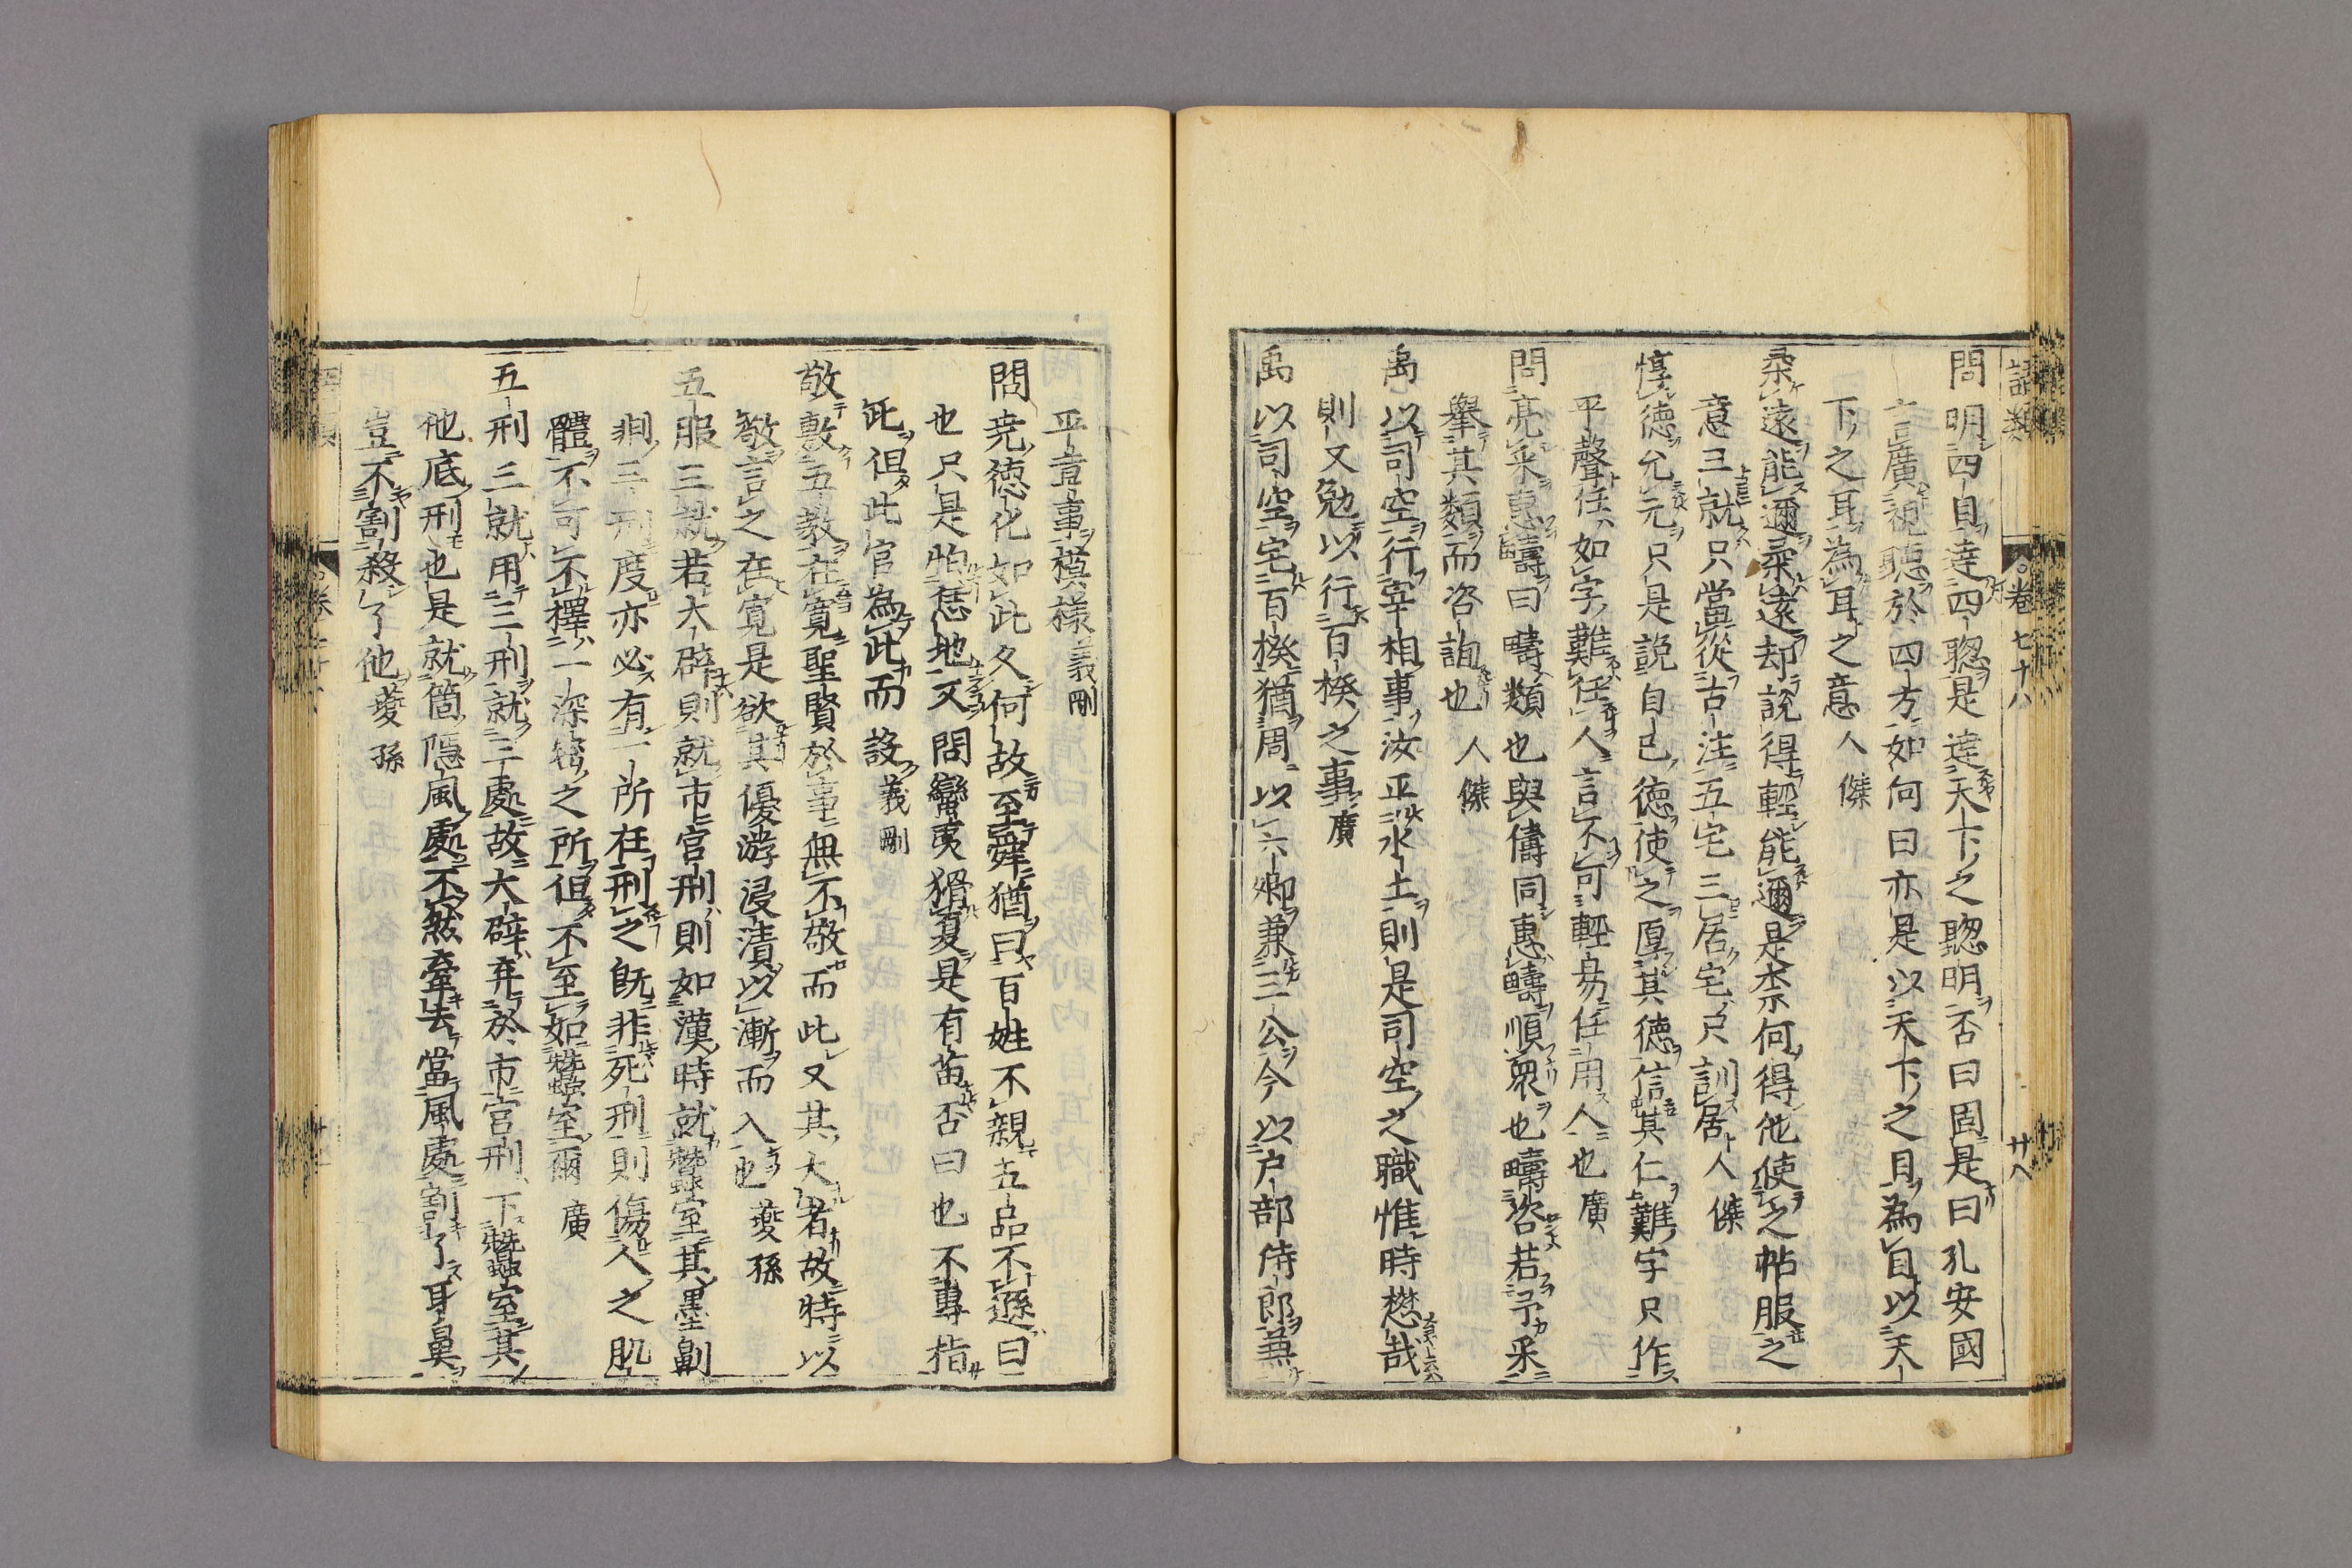 語類 卷七十八 廿八
問明四目達四聰是達天下之聰明否曰固是曰孔安國
言廣視聽於四方如何曰亦是以天下之目為目以天
下之耳為耳之意人傑
柔遠能邇柔遠却說得輕能邇是柰何得他使之帖服之
意三就只當從古註五宅三居宅只訓居人傑
惇德允元只是說自己德使之厚其德信其仁難字只作
平聲任如字難任人言不可輕易任用人也廣
問亮采惠疇曰疇類也與儔同惠疇順衆也疇咨若予采
舉其類而咨詢也人傑
禹以司空行宰相事汝平水土則是司空之職惟時懋哉
則又勉以行百揆之事廣
禹以司空宅百揆猶周以六卿兼三公今以戶部侍郎兼
平章事模樣義剛
問堯德化如此久何故至舜猶曰百姓不親五品不遜曰
也只是怕恁地又問蠻夷猾夏是有苗否曰也不專指
此但此官為此而設義剛
敬敷五教在寬聖賢於事無不敬而此又其大者故特以
敬言之在寬是欲其優游浸漬以漸而入也夔孫
五服三就若大辟則就市宮刑則如漢時就蠶室其墨劓
剕三刑度亦必有一所在刑之旣非死刑則傷人之肌
體不可不擇一深密之所但不至如蠶室爾廣
五刑三就用三刑就三處故大辟弃於市宮刑下蠶室其
他底刑也是就箇隱風處不然牽去當風處割了耳鼻
豈不割殺了他夔孫